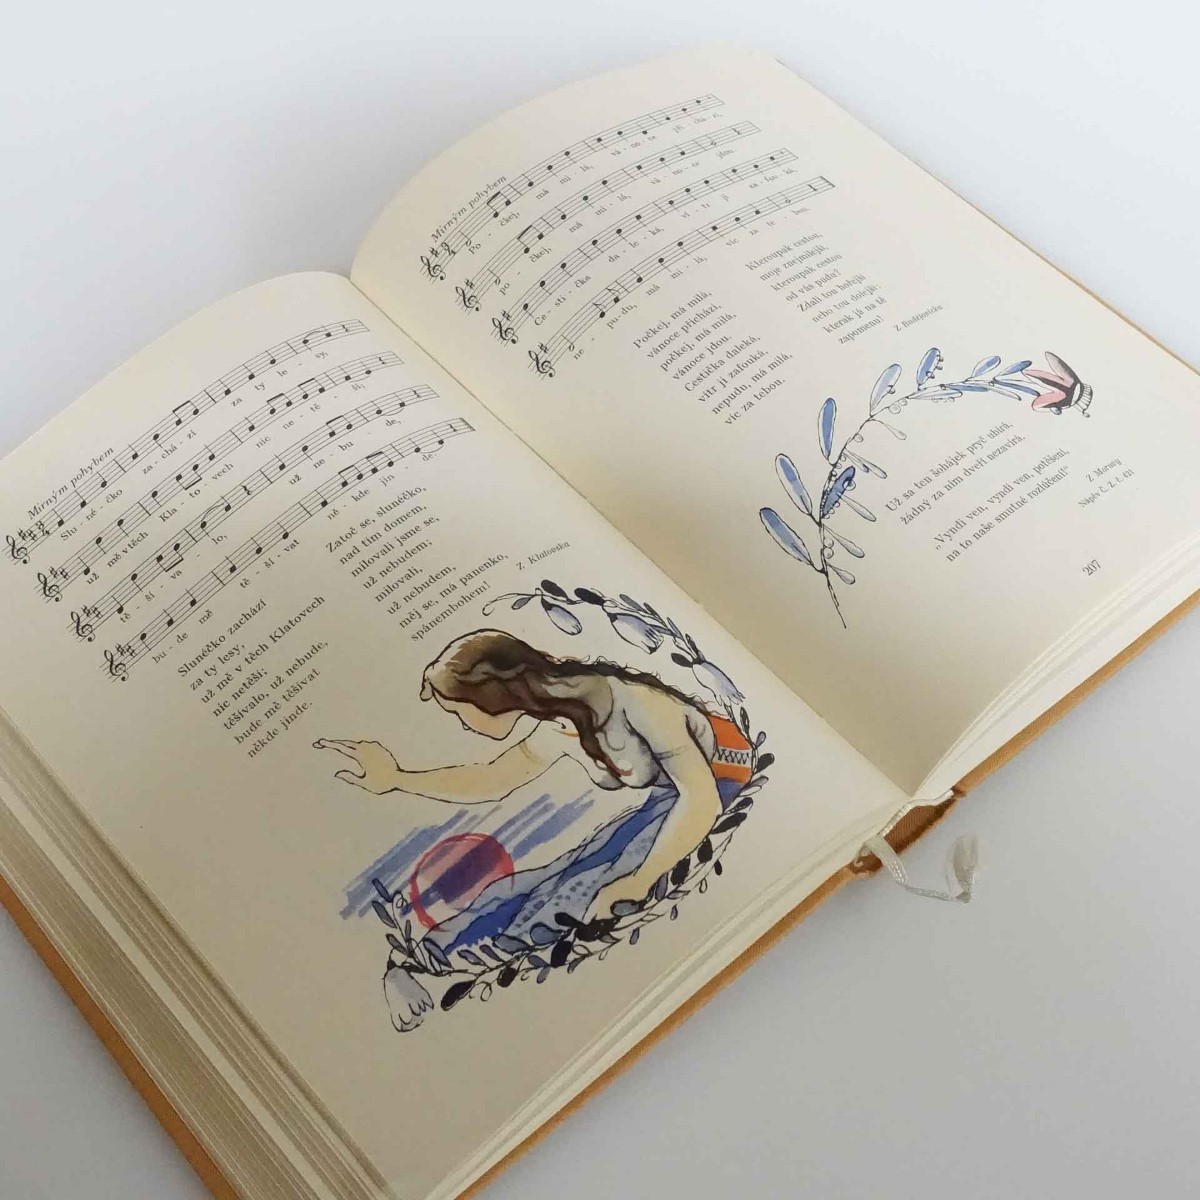 Mírným pohybem
Slu - néč - ko za - chá - zí za ty le - sy,
už mě v těch Kla - to - vech nic ne - tě - ší,
tě - ší - va - lo, už ne - bu - de,
bu - de mě tě - ší - vat ně - kde jin - de.
Slunéčko zachází
za ty lesy,
už mě v těch Klatovech
nic netěší;
těšívalo, už nebude,
bude mě těšívat
někde jinde.
Zatoč se, slunéčko,
nad tím domem,
milovali jsme se,
už nebudem;
milovali,
už nebudem,
měj se, má panenko,
spánembohem!
Z Klatovska
Mírným pohybem
Po - čkej, má mi - lá, vá - no - ce při - chá - zí,
po - čkej, má mi - lá, vá - no - ce jdou.
Ce - sti - čka da - le - ká, ví - tr ji za - fou - ká,
ne - pu - du, má mi - lá, víc za te - bou.
Počkej, má milá,
vánoce přichází,
počkej, má milá,
vánoce jdou.
Cestička daleká,
vítr ji zafouká,
nepudu, má milá,
víc za tebou.
Kteroupak cestou,
moje znejmilejší,
kteroupak cestou
od vás pudu?
Zdali tou hořejší
nebo tou dolejší:
kterak já na tě
zapomenu!
Z Budějovicka
Už sa ten šohájek pryč ubírá,
žádný za ním dveří nezavírá.
„Vyndi ven, vyndi ven, potěšení,
na to naše smutné rozlúčení!“
Z Moravy
Nápěv Č. Z. I. 431
207